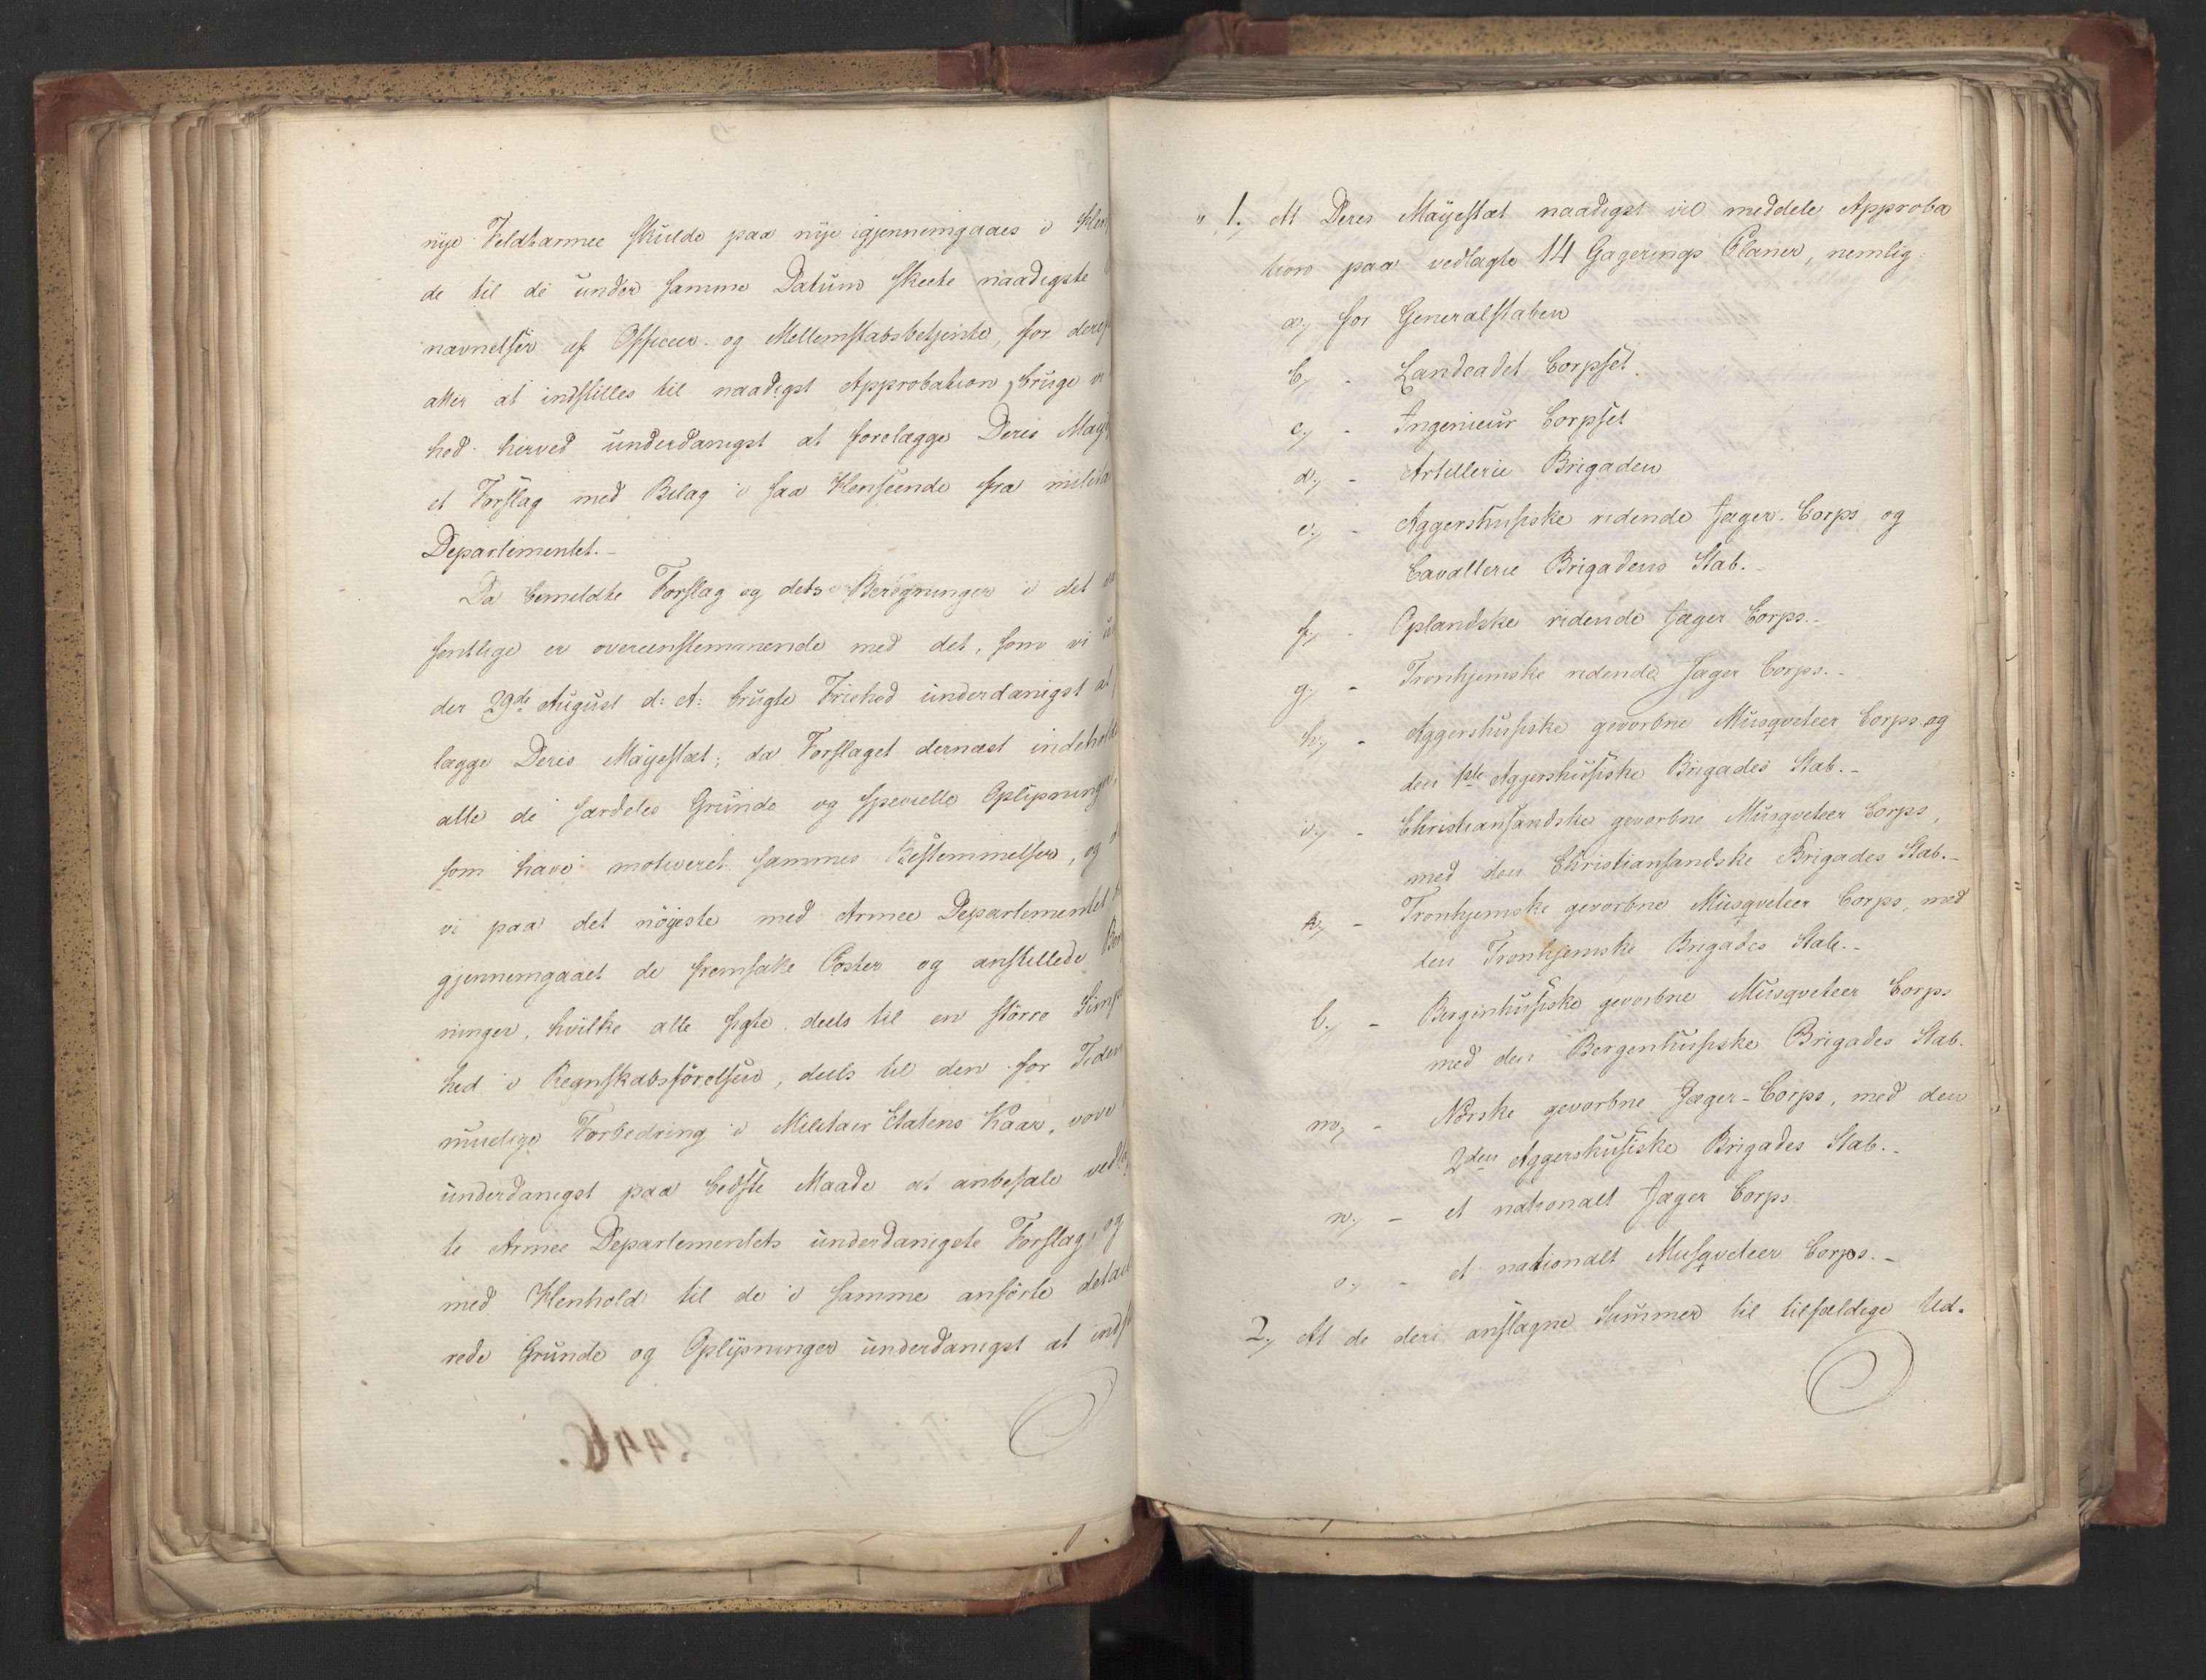 nÿe Feldtarmee skulde paa nÿe igjennemgaaes i
de til de under samme Datum skeete naadigste
nævnelser af Officeer- og Mellemstabsbetjente, for
atter at indstilles til naadigst Approbation, bruge vi
hed herved underdanigst at forelægge Deres
et Forslag med Bilag i saa Henseende fra
Departementet.-
Da bemeldte Forslag og dets Beregninger i det
sentlige er overeenstemmende med det, som vi
der 29de August d: A: brugte Friehed underdanigst at
lægge Deres Mayestæt; da Forslaget dernæst
alle de særdeles Grunde og specielle
som have motiveret sammes Bestemmelser, og
vi paa det nöyeste med Armee Departementet
gjennemgaaet de fremsatte Poster og anstillede
ninger, hvilke alle sigte, deels til en större
hed i Regnskabsförelsen, deels til den for
muelige Forbedring i Militair Etatens Kaar, vove
underdanigst paa bedste Maade at anbefale
te Armee Departementets underdanigste Forslag, og
med Henhold til de i samme anförte
rede Grunde og Oplÿsninger underdanigst at
" 1, At Deres Mayestæt naadigst vil meddele Approba
tion paa vedlagte 14 Gagerings Planer, nemlig:
a, for Generalstaben
b, - Landcadet Corpset.
c, - Ingenieur Corpset
d, - Artillerie Brigaden
e, - Aggershusiske ridende Jæger Corps og
Cavallerie Brigadens Stab.-
f, - Oplandske ridende Jæger Corps.-
g, - Tronhjemske ridende Jæger Corps.-
h, - Aggershusiske gevorbne Musqveteer Corps og
den 1ste Aggershusiske Brigades Stab.-
i, - Christiansandske gevorbne Musqveteer Corps,
med den Christiansandske Brigades Stab.-
k, - Tronhjemske gevorbne Musqveteer Corps, med
den Tronhjemske Brigades Stab.-
l, - Bergenhusiske gevorbne Musqveteer Corps
med den Bergenhusiske Brigades Stab.
m, - Norske gevorbne Jæger-Corps, med den
2den Aggershusiske Brigades Stab.-
n, - et nationalt Jæger Corps
o, - et nationalt Musqveteer Corps.-
2, At de deri anslagne Summer til tilfældige Ud-